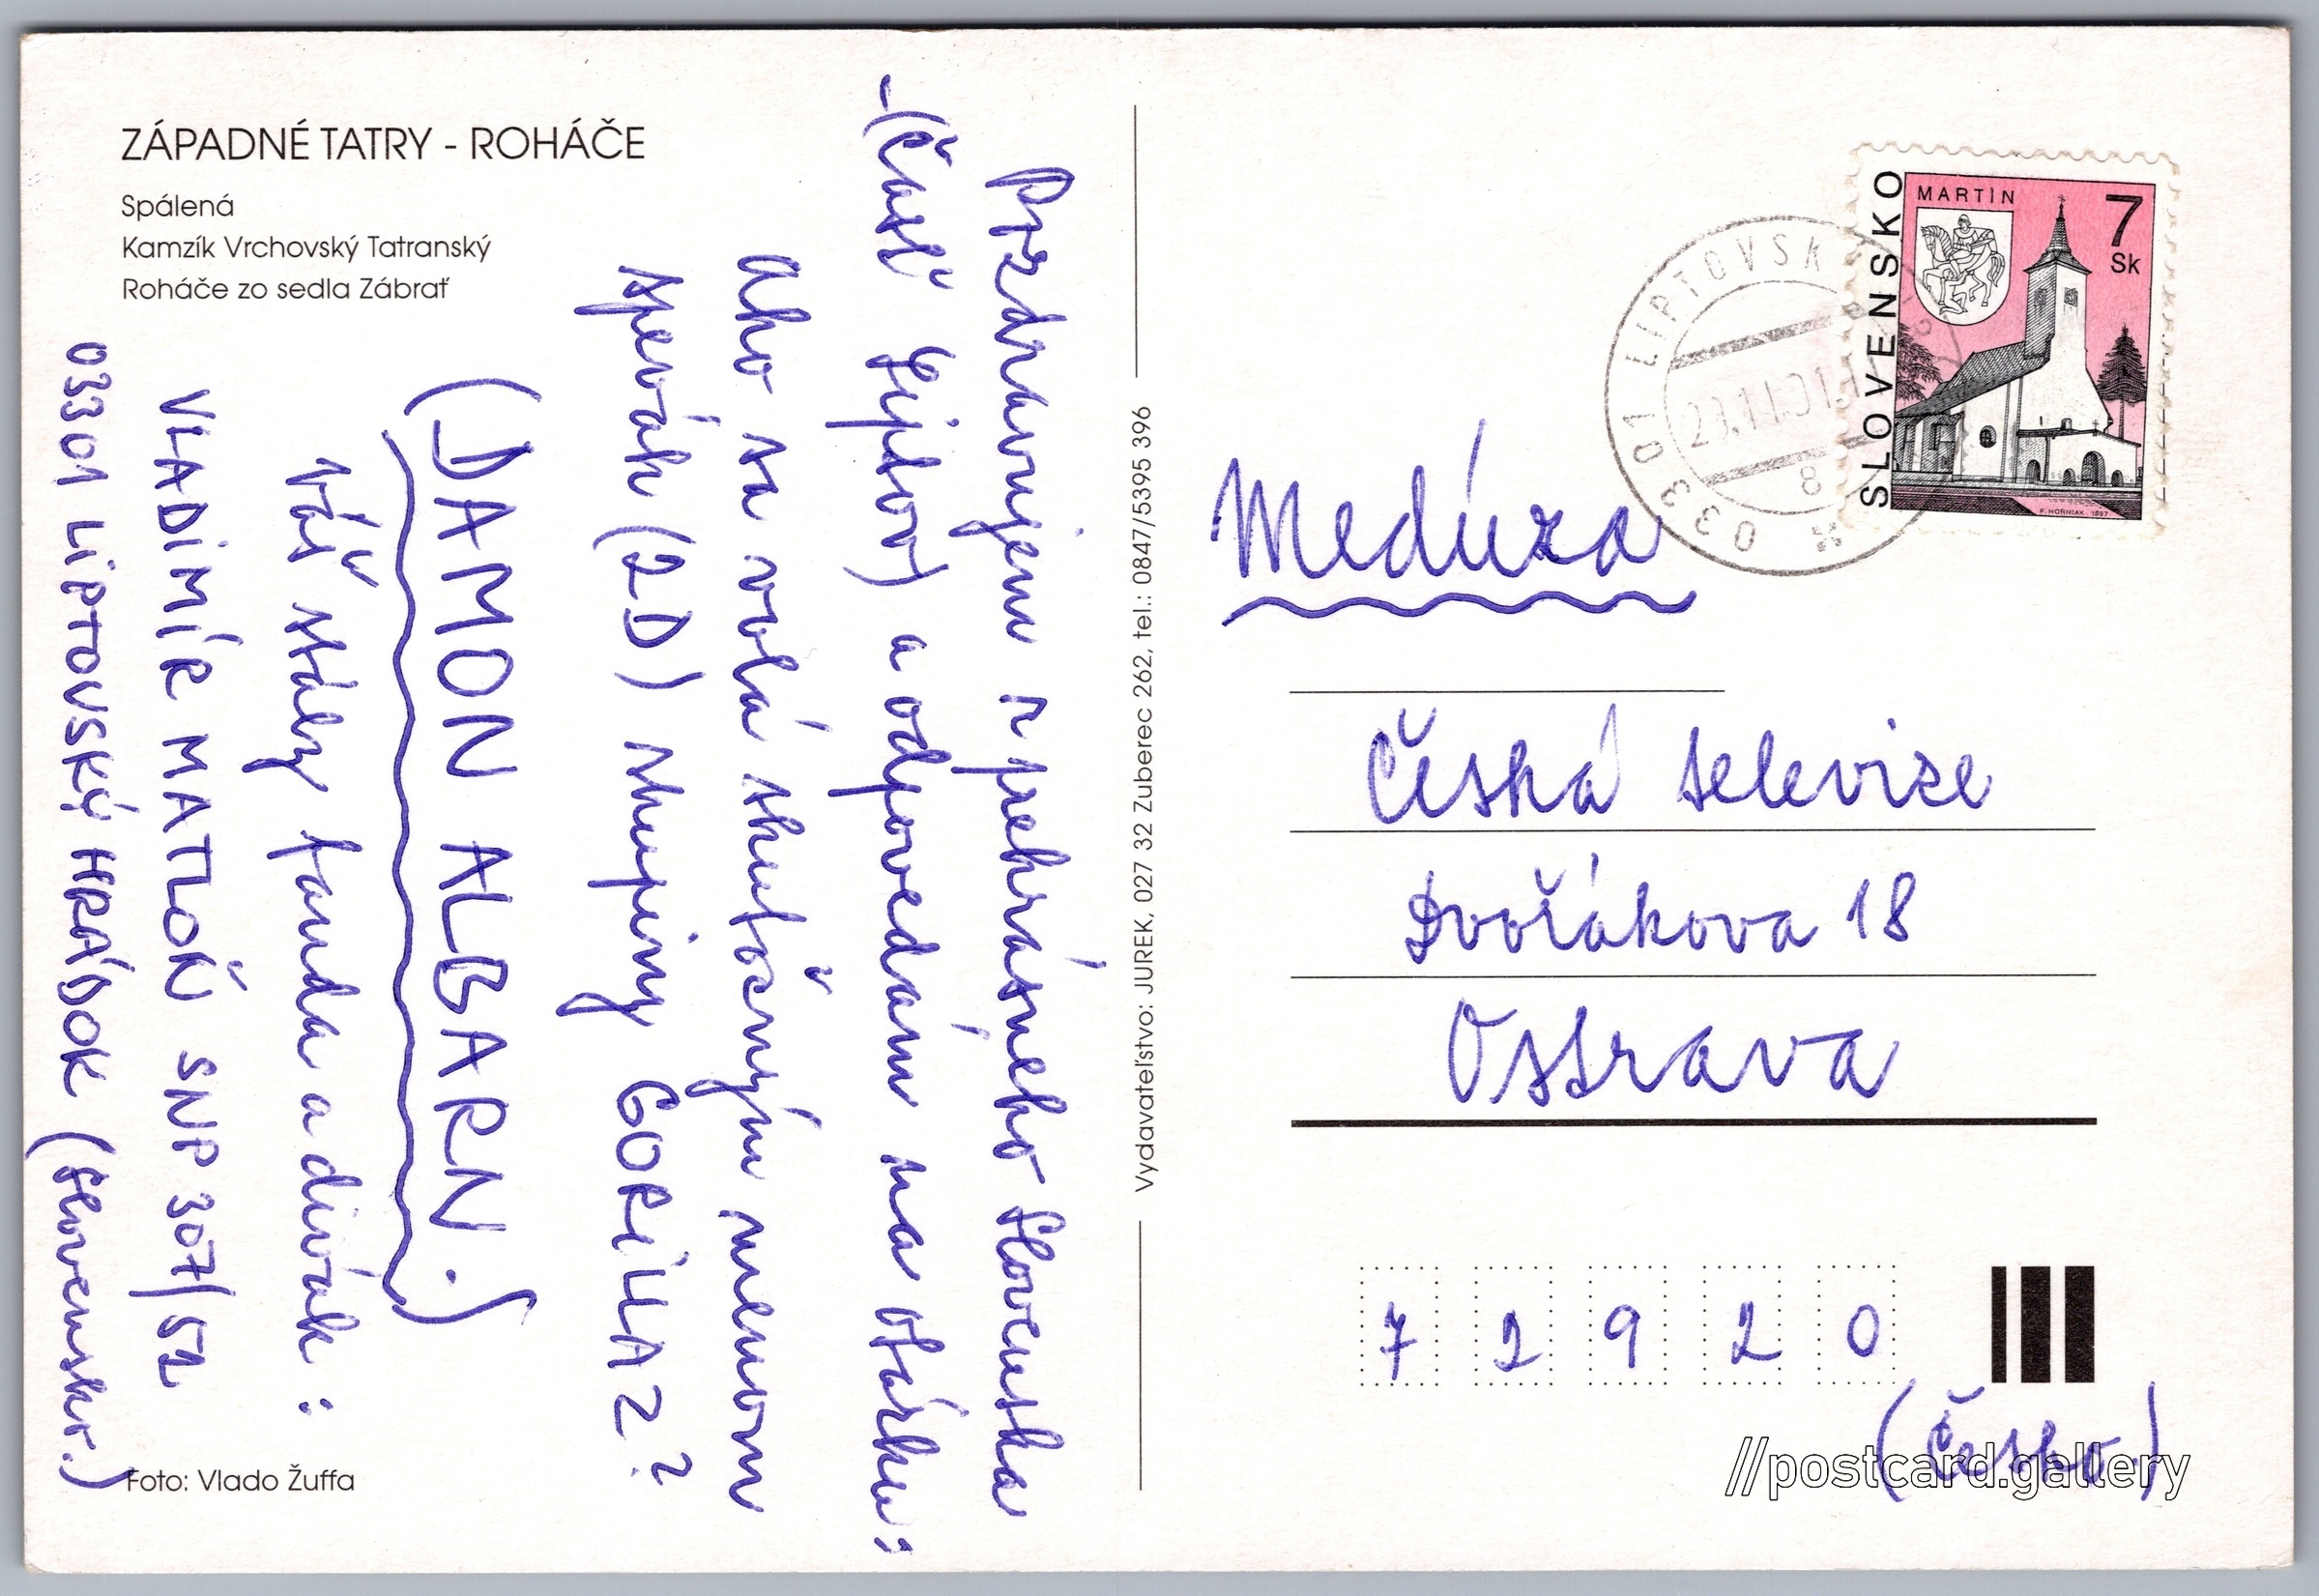 ZÁPADNÉ TATRY - ROHÁČE
Spálená
Kamzík Vrchovský Tatranský
Roháče zo sedla Zábrať
Pozdravujem z prekrásneho Slovenska
-(Časť Liptov) a odpovedám na otázku:
Ako sa volá skutočným menom
spevák (2D) skupiny GORILLAZ?
(DAMON ALBARN.)
Váš stály fanda a divák:
VLADIMÍR MATLOŇ SNP 307/52
03301 LIPTOVSKÝ HRÁDOK (Slovensko.)
Foto: Vlado Žuffa
Vydavateľstvo: JUREK, 027 32 Zuberec 262, tel.: 0847/5395 396
SLOVENSKO
MARTIN
7
Sk
F. HORNIAK 1997
033 01 LIPTOVSK
8
Medúza
Česká televize
Dvořákova 18
Ostrava
7 2 9 2 0
(Česko.)
//postcard.gallery